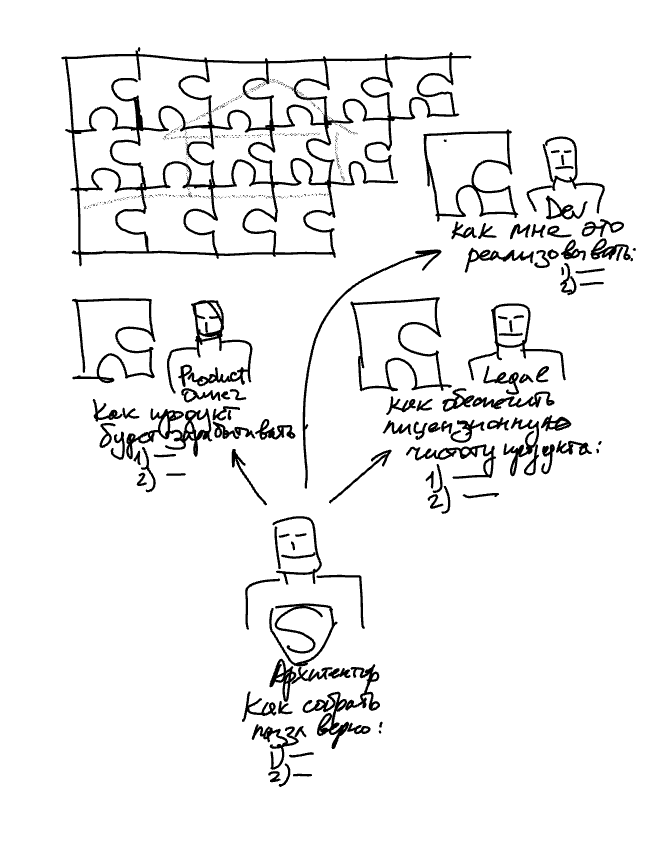 Dev
Как мне это
реализовывать:
1) —
2) —
Product
Owner
Как продукт
будет зарабатывать
1) —
2) —
Legal
Как обеспечить
лицензионную
чистоту продукта:
1) —
2) —
S
Архитектор
Как собрать
паззл верно:
1) —
2) —